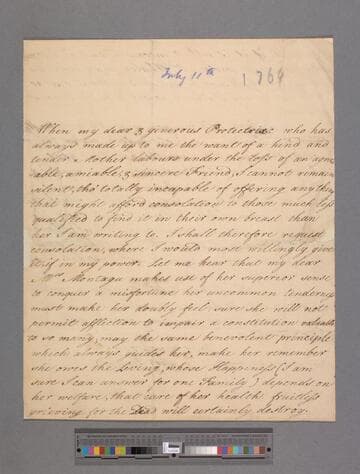 July 11th 1769
When my dear & generous Protectrice who has
always made up to me the want of a kind and
tender Mother labours under the loss of an agree
able, amiable, & sincere Friend, I cannot remain
silent, tho' totally incapable of offering anything
that might afford consolation to those much less
qualified to find it in their own breast than
her I am writing to. I shall therefore request
consolation, where I would most willingly give
it if in my power. Let me hear that my dear
Mrs Montagu makes use of her superior sense
to conquer a misfortune her uncommon tenderness
must make her doubly feel. sure she will not
permit affliction to impair a constitution valuable
to so many, may the same benevolent principle
which always guides her, make her remember
she owes the Living, whose Happiness (I am
sure I can answer for one Family) depends on
her welfare, that care of her health fruitless
grieving for the Dead will certainly destroy.